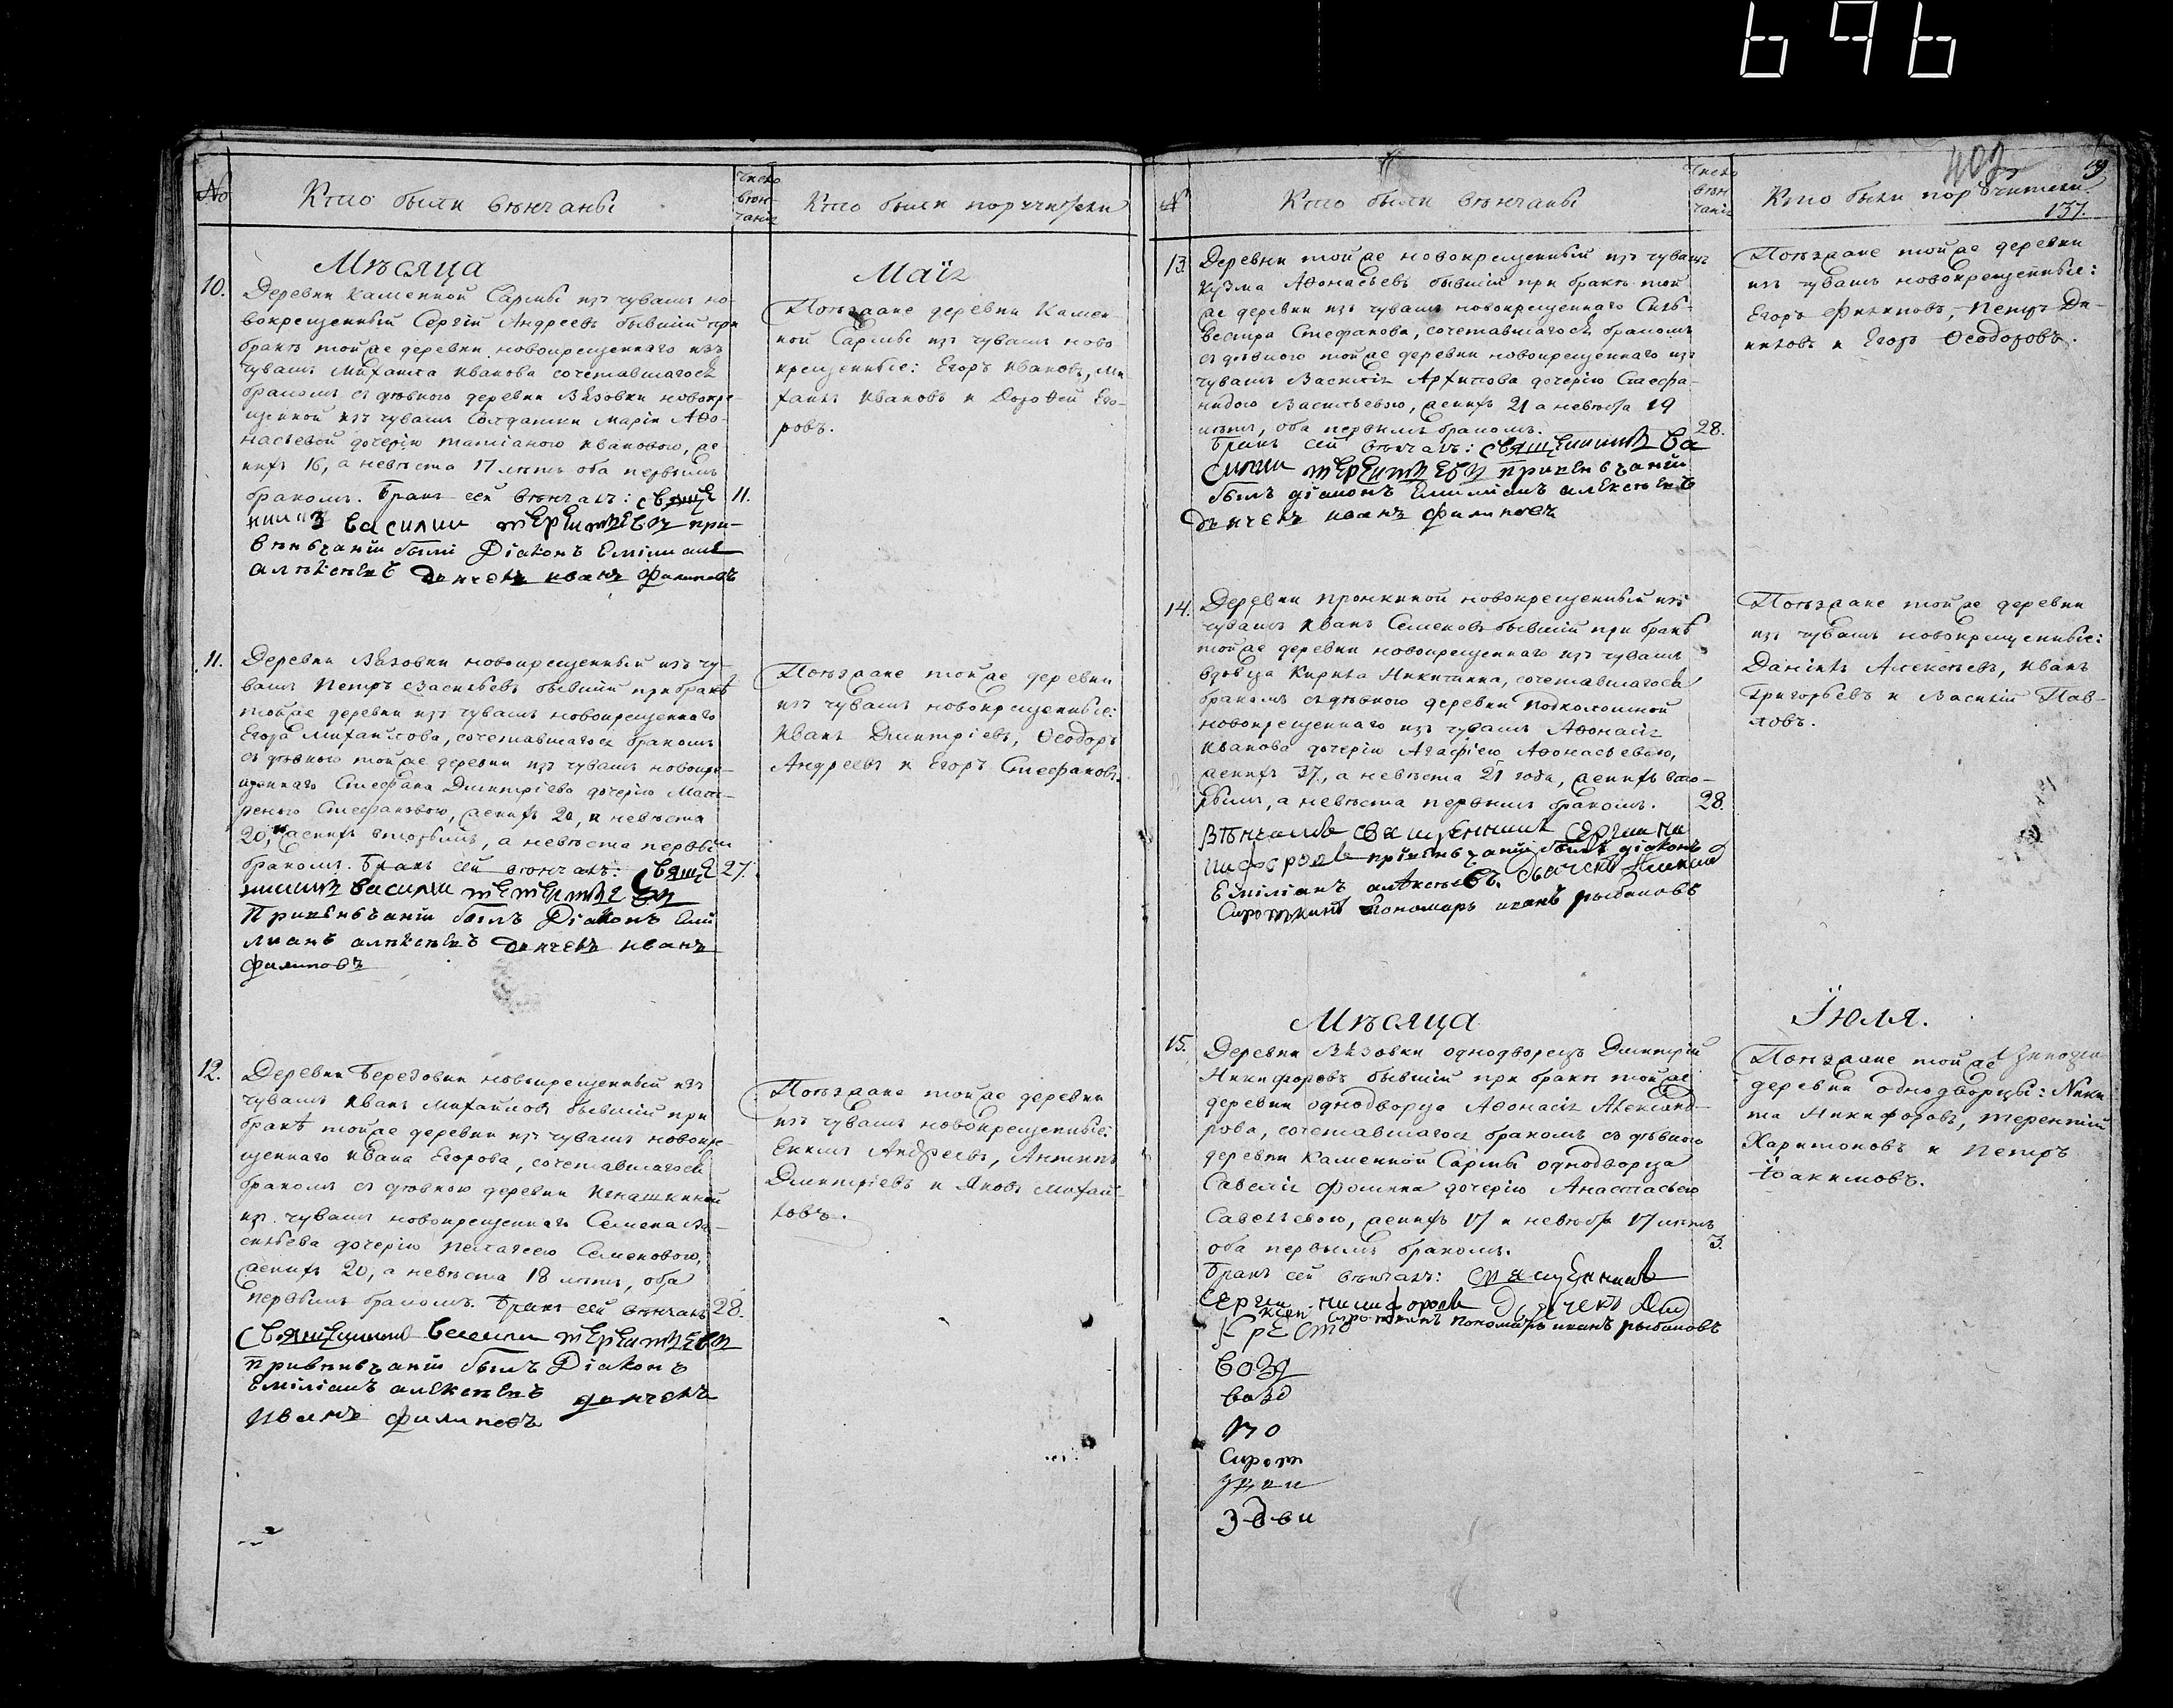 696
№
Кто были вѣнчаны
Число вѣн-чанія
Кто были поручители
Мѣсяца
Маія
10.
Деревни Каменной Сармы изъ чувашъ но-
вокрещенный Сергій Андреевъ бывшій при
бракѣ тойже деревни новокрещеннаго изъ
чувашъ Михаила Иванова сочетавшагося
бракомъ съ дѣвкою деревни Вязовки новокре-
щенной изъ чувашъ Солдатки Маріи Аѳо-
насьевой дочерію Татіаною Ивановою, же
нихъ 16, а невѣста 17 лѣтъ оба первымъ
бракомъ. Бракъ сей вѣнчалъ: Свяще
11.
никъ Василии при-
вѣнчаніи были Діаконъ Емилианъ
Алѣксѣевъ дьячекъ Иванъ Филиповъ
Поѣзжане деревни Камен-
ной Сармы изъ чувашъ ново
крещенные: Егоръ Ивановъ, Ми
хаилъ Ивановъ и Дороѳей Его-
ровъ.
11.
Деревни Вязовки новокрещенный изъ чу-
вашъ Петръ Васильевъ бывшій при бракѣ
тойже деревни изъ чувашъ новокрещеннаго
Егора Михайлова, сочетавшагося бракомъ
съ дѣвкою тойже деревни изъ чувашъ новокре-
щеннаго Стефана Дмитріева дочерію Мат-
реною Стефановою, женихъ 20, и невѣста
20, женихъ вторымъ, а невѣста первымъ
бракомъ. Бракъ сей вѣнчалъ: Свяще
27.
нникъ Василии
При вѣнчаніи былъ Діаконъ Еми
лианъ Алѣксѣевъ дьячекъ Иванъ
Филиповъ
Поѣзжане тойже деревни
изъ чувашъ новокрещенные:
Иванъ Дмитріевъ, Ѳеодоръ
Андреевъ и Егоръ Стефановъ.
12.
Деревни Березовки новокрещенный изъ
чувашъ Иванъ Михайловъ бывшій при
бракѣ тойже деревни изъ чувашъ новокре-
щеннаго Ивана Егорова, сочетавшагося
бракомъ съ дѣвкою деревни
изъ чувашъ новокрещеннаго Семена Ва-
сильева дочерію Пелагеею Семеновою,
женихъ 20, а невѣста 18 лѣтъ, оба
первымъ бракомъ. Бракъ сей вѣнчалъ
28.
Священникъ Василии
При вѣнчаніи былъ Діаконъ
Емиліанъ Алексѣевъ дьячекъ
Иванъ Филиповъ
Поѣзжане тойже деревни
изъ чувашъ новокрещенные:
Екимъ Андреевъ, Антипъ
Дмитріевъ и Яковъ Михай-
ловъ.
402
137.
№
Кто были вѣнчаны
Число вѣн-чанія
Кто были поручители
13.
Деревни тойже новокрещенный изъ чувашъ
Кузма Аѳонасьевъ бывшій при бракѣ той
же деревни изъ чувашъ новокрещеннаго Силь-
вестра Стефанова, сочетавшагося бракомъ
съ дѣвкою тойже деревни новокрещеннаго изъ
чувашъ Василія Архипова дочерію Стефа-
нидою Васильевою, женихъ 21 а невѣста 19
лѣтъ, оба первымъ бракомъ.
28.
Бракъ сей вѣнчалъ: Священникъ Ва
силии при вѣнчаніи
былъ діаконъ Емилианъ Алексѣевъ
дьячекъ Иванъ Филиповъ
Поѣзжане тойже деревни
изъ чувашъ новокрещенные:
Егоръ Филиповъ, Петръ Да-
ниловъ и Егоръ Ѳеодоровъ.
14.
Деревни Пронкиной новокрещенный изъ
чувашъ Иванъ Семеновъ бывшій при бракѣ
тойже деревни новокрещеннаго изъ чувашъ
вдовца Кирила Никитина, сочетавшагося
бракомъ съ дѣвкою деревни Подколошной
новокрещеннаго изъ чувашъ Аѳонасія
Иванова дочерію Агафіею Аѳонасьевою,
женихъ 37, а невѣста 21 года, женихъ вто-
рымъ, а невѣста первымъ бракомъ.
28.
Вѣнчалъ священникъ Сергии Ни
кифоровъ при вѣнчаніи былъ діаконъ
Емиліанъ Алексѣевъ. дьячекъ
Сироткинъ пономарь Иванъ Рыбаковъ
Поѣзжане тойже деревни
изъ чувашъ новокрещенные:
Даніилъ Алексѣевъ, Иванъ
Григорьевъ и Василій Пав-
ловъ.
Мѣсяца
Іюля.
15.
Деревни Вязовки однодворецъ Дмитрій
Никифоровъ бывшій при бракѣ тойже
деревни однодворца Аѳонасія Александ-
рова, сочетавшагося бракомъ съ дѣвкою
деревни Каменной Сармы однодворца
Савелія Фомина дочерію Анастасьею
Савельевою, женихъ 17 и невѣста 17 лѣтъ
оба первымъ бракомъ.
3.
Бракъ сей вѣнчалъ: священникъ
Сергии Никифоровъ дьячекъ
Сироткинъ пономарь Иванъ Рыбаковъ
Поѣзжане тойже
деревни однодворцы: Ники
та Никифоровъ, Терентій
Харитоновъ и Петръ
Іоакимовъ.
Кресто
возд
возд
по
Сирот